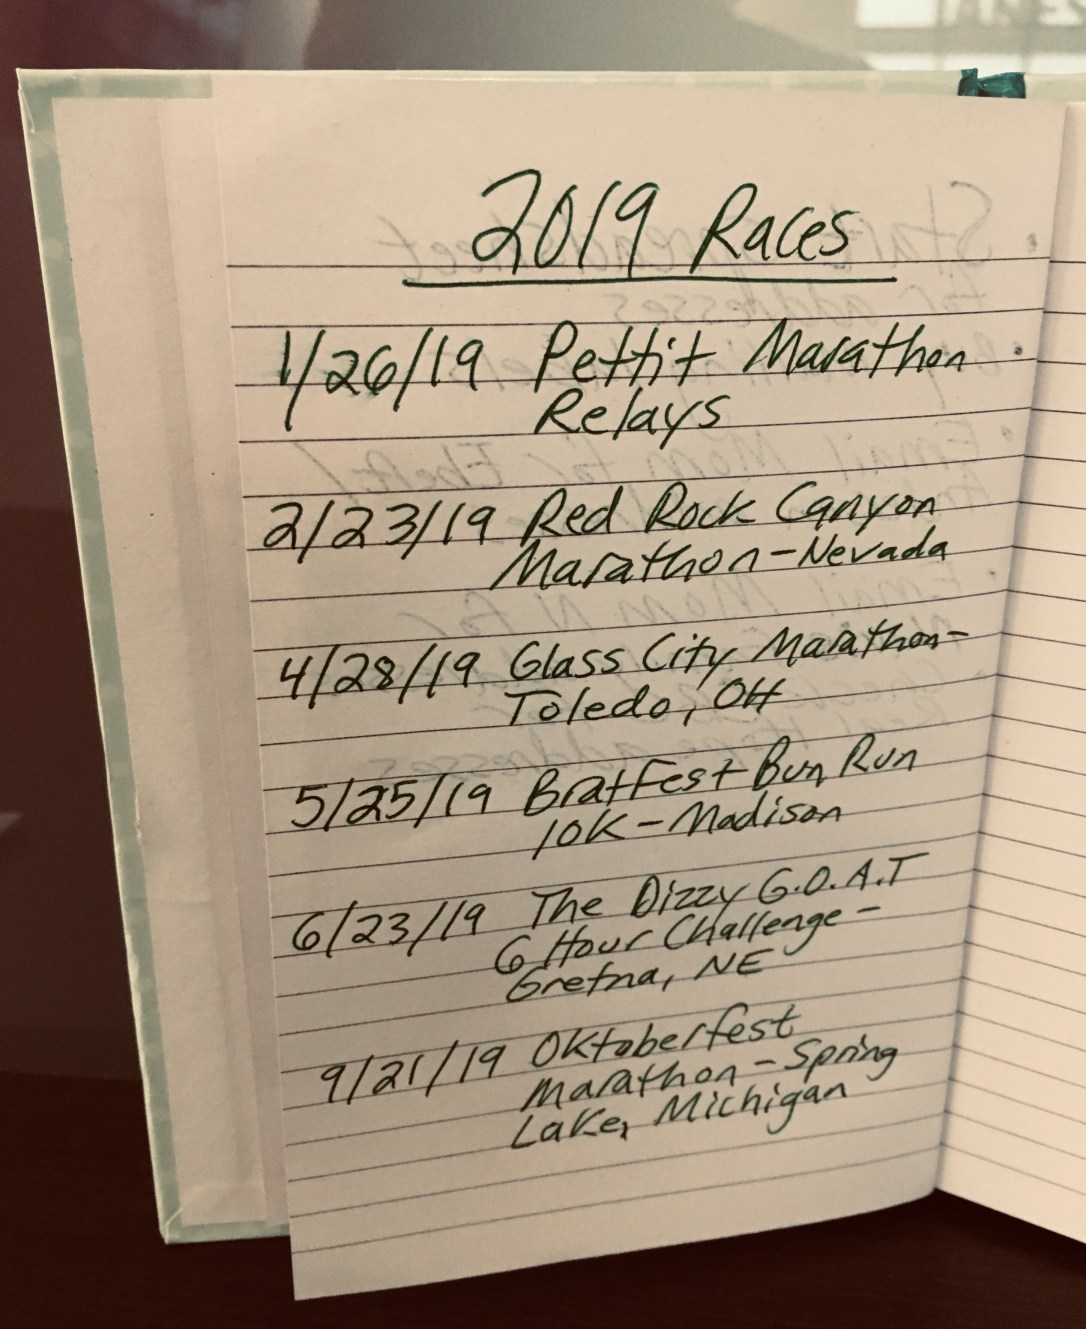 2019 Races
1/26/19 Pettit Marathon
Relays
2/23/19 Red Rock Canyon
Marathon - Nevada
4/28/19 Glass City Marathon -
Toledo, OH
5/25/19 Bratfest Bun Run
10K - Madison
6/23/19 The Dizzy G.O.A.T
6 Hour Challenge -
Gretna, NE
9/21/19 Oktoberfest
Marathon - Spring
Lake, Michigan